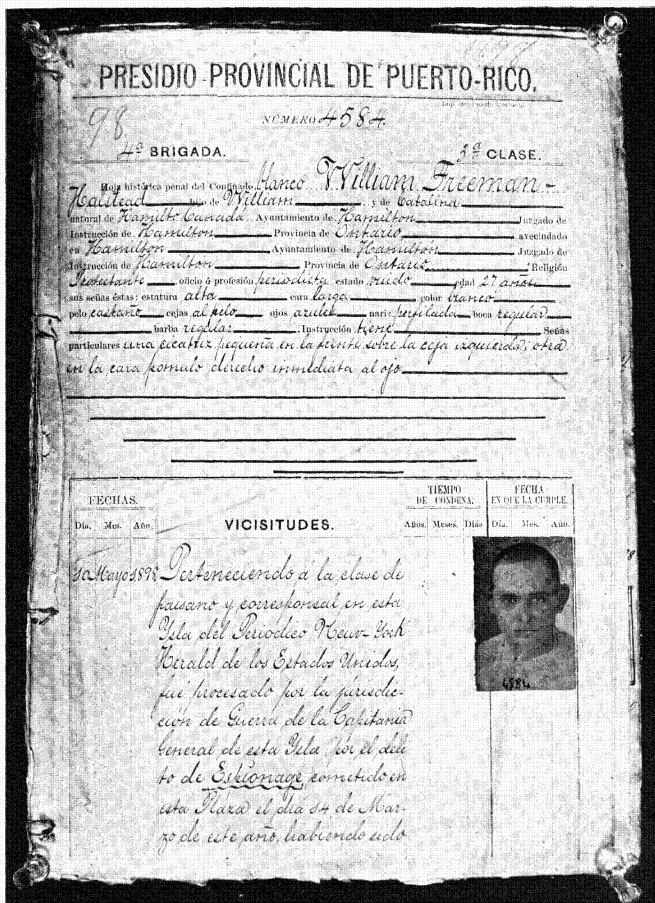 PRESIDIO PROVINCIAL DE PUERTO-RICO.
98
NÚMERO 4584.
4ª BRIGADA. 3ª CLASE.
Hoja histórica penal del Confinado blanco William Freeman
Halstead hijo de William y de Catalina
natural de Hamilto Canada. Ayuntamiento de Hamilton Juzgado de
Instrucción de Hamilton Provincia de Ontario avecindado
en Hamilton Ayuntamiento de Hamilton Juzgado de
Instrucción de Hamilton Provincia de Ontario Religión
Protestante oficio ó profesión periodista estado viudo edad 27 años
sus señas éstas: estatura alta cara larga color blanco
pelo castaño cejas al pelo ojos azules nariz perfilada boca regular
barba regular Instrucción tiene Señas
particulares una cicatriz pequeña en la frente sobre la ceja izquierda; otra
en la cara pomulo derecho inmediata al ojo
FECHAS. VICISITUDES. TIEMPO DE CONDENA. FECHA EN QUE LA CUMPLE.
Día. Mes. Año. Años. Meses. Días Día. Mes. Año.
10 Mayo 1898 Perteneciendo á la clase de
paisano y corresponsal en esta
Ysla del Periodico New-York
Herald de los Estados Unidos,
fué procesado por la jurisdic-
ción de Guerra de la Capitania
General de esta Ysla por el deli-
to de Espionage, cometido en
esta Plaza el día 14 de Mar-
zo de este año, habiendo sido
4584